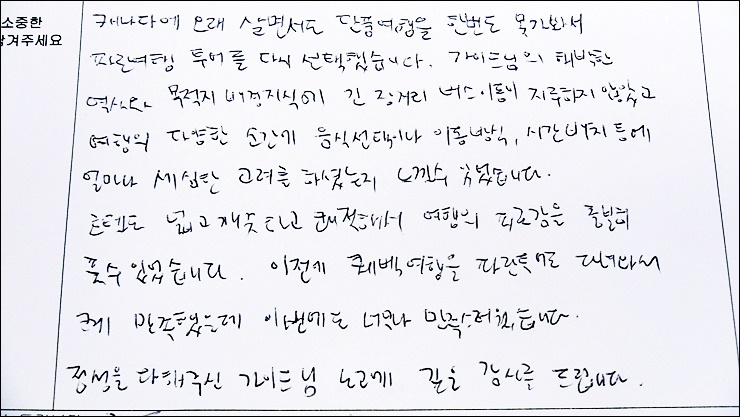 소중한
남겨주세요
캐나다에 오래 살면서도 단풍여행을 한번도 못가봐서
파란여행 투어를 다시 선택했습니다. 가이드님의 해박한
역사와 목적지 배경지식에 긴 장거리 버스이동이 지루하지 않았고
여행의 다양한 순간에 음식선택이나 이동방식, 시간배치 등에
얼마나 세심한 고려를 하셨는지 느낄수 있었습니다.
호텔도 넓고 깨끗하고 쾌적해서 여행의 피로감을 충분히
풀수 있었습니다. 이전에 퀘벡여행을 파란투어로 다녀와서
크게 만족했는데 이번에도 너무나 만족스러웠습니다.
정성을 다해주신 가이드님 노고에 깊은 감사를 드립니다.